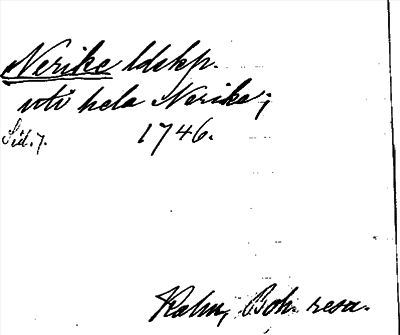 Nerike ldskp.
uti hela Nerike;
Sid. 7. 1746.
Kalm, Boh. resa.